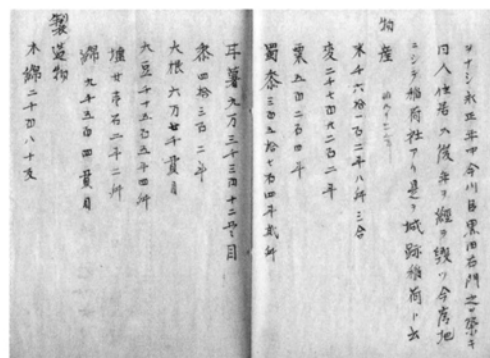 ヲナシ永正年中今川臣黒田右門之ヲ築キ
日入住居ス後年ヲ經ヲ毀ツ今廃地
ニシテ稲荷社アリ是ヲ城跡稲荷ト云
物産
米千六拾一石二斗八升三合
麦二千七百九石二斗
粟五百二石四斗
蜀黍三百五拾七石四斗貳升
耳薯九万三千三百十二貫目
黍四拾三石二斗
大根六万廿千貫目
大豆千十五石五斗四升
壚廿壱石二斗二升
綿九千五百四貫目
製造物
木綿二千四八十反